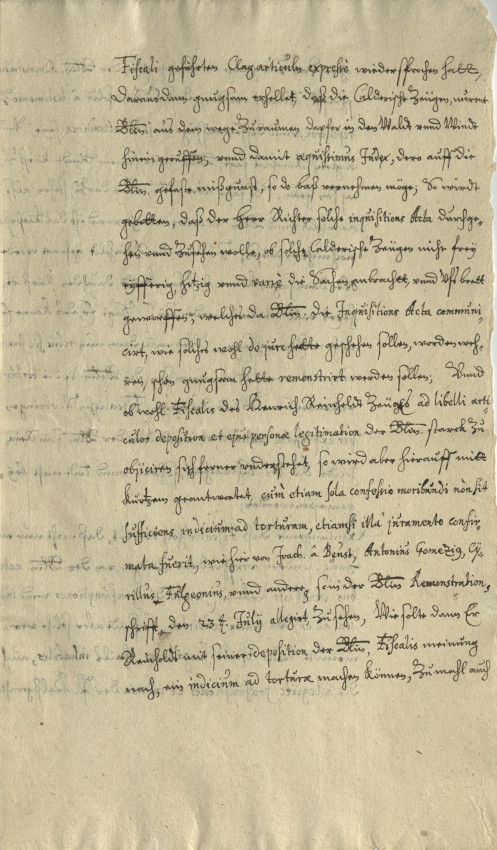 Fiscali geführten Clag articuln expresse wiedersprochen hatt,
Daraus dann gnugsam erhellet, daß die Calderische Zeügen, nur eine
Bltin. aus dem wege Zuraumen dapfer in den Wald vnnd Windt
hinein geruffen, vnnd damit æquissimus Judex, dero auff die
Bltin. gefaste mißgunst, so do baß vernehmen möge; So wirdt
gebetten, daß der Herr Richter solche inquisitions Acta durchge-
hen vnnd Zusehen wolle, ob solche Calderische Zeügen nicht frey
eÿfferig, hitzig vnnd die Sachen anbracht, vnnd vfs brett
geworffen, welches da Bltin. die Inquisitions Acta communi-
cirt, wie solches wohl de jure hette geschehen sollen, worden weh-
ren, schon gnugsam hette remonstrirt werden sollen; Vnnd
ob wohl Fiscalis des Henrich Reinholdt Zeügen ad libelli arti-
culos deposition et ejus personæ legitimation der Bltin. starck Zu
objiciren sich ferner understehet, so wird aber hierauff mitt
kurtzem geantwortet, cum etiam sola confessio moribundi non sit
sufficiens indicium ad torturam, etiamsi illa juramento confir-
mata fuerit, wie hier von Joach. à Beust, Antonius Gomezius, Cÿ-
rillus, Fulgeonius, vnnd andere in der Bltin Remonstration
schrifft, den 23t. Julÿ allegirt, Zu sehen, Wie solte dann Er
Reinholdt mit seiner deposition der Bltin, Fiscalis meinung
nach, ein indicium ad torturæ machen können, Zumahl auch